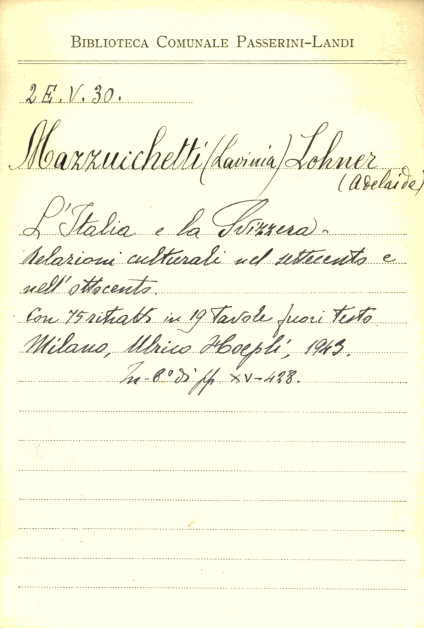 BIBLIOTECA COMUNALE PASSERINI-LANDI
2 E. V. 30.
Mazzucchetti (Lavinia) Lohner
(Adelaide)
L'Italia e la Svizzera.
Relazioni culturali nel settecento e
nell'ottocento.
Con 75 ritratti in 19 tavole fuori testo
Milano, Ulrico Hoepli, 1943.
In-8° di pp. XV-428.